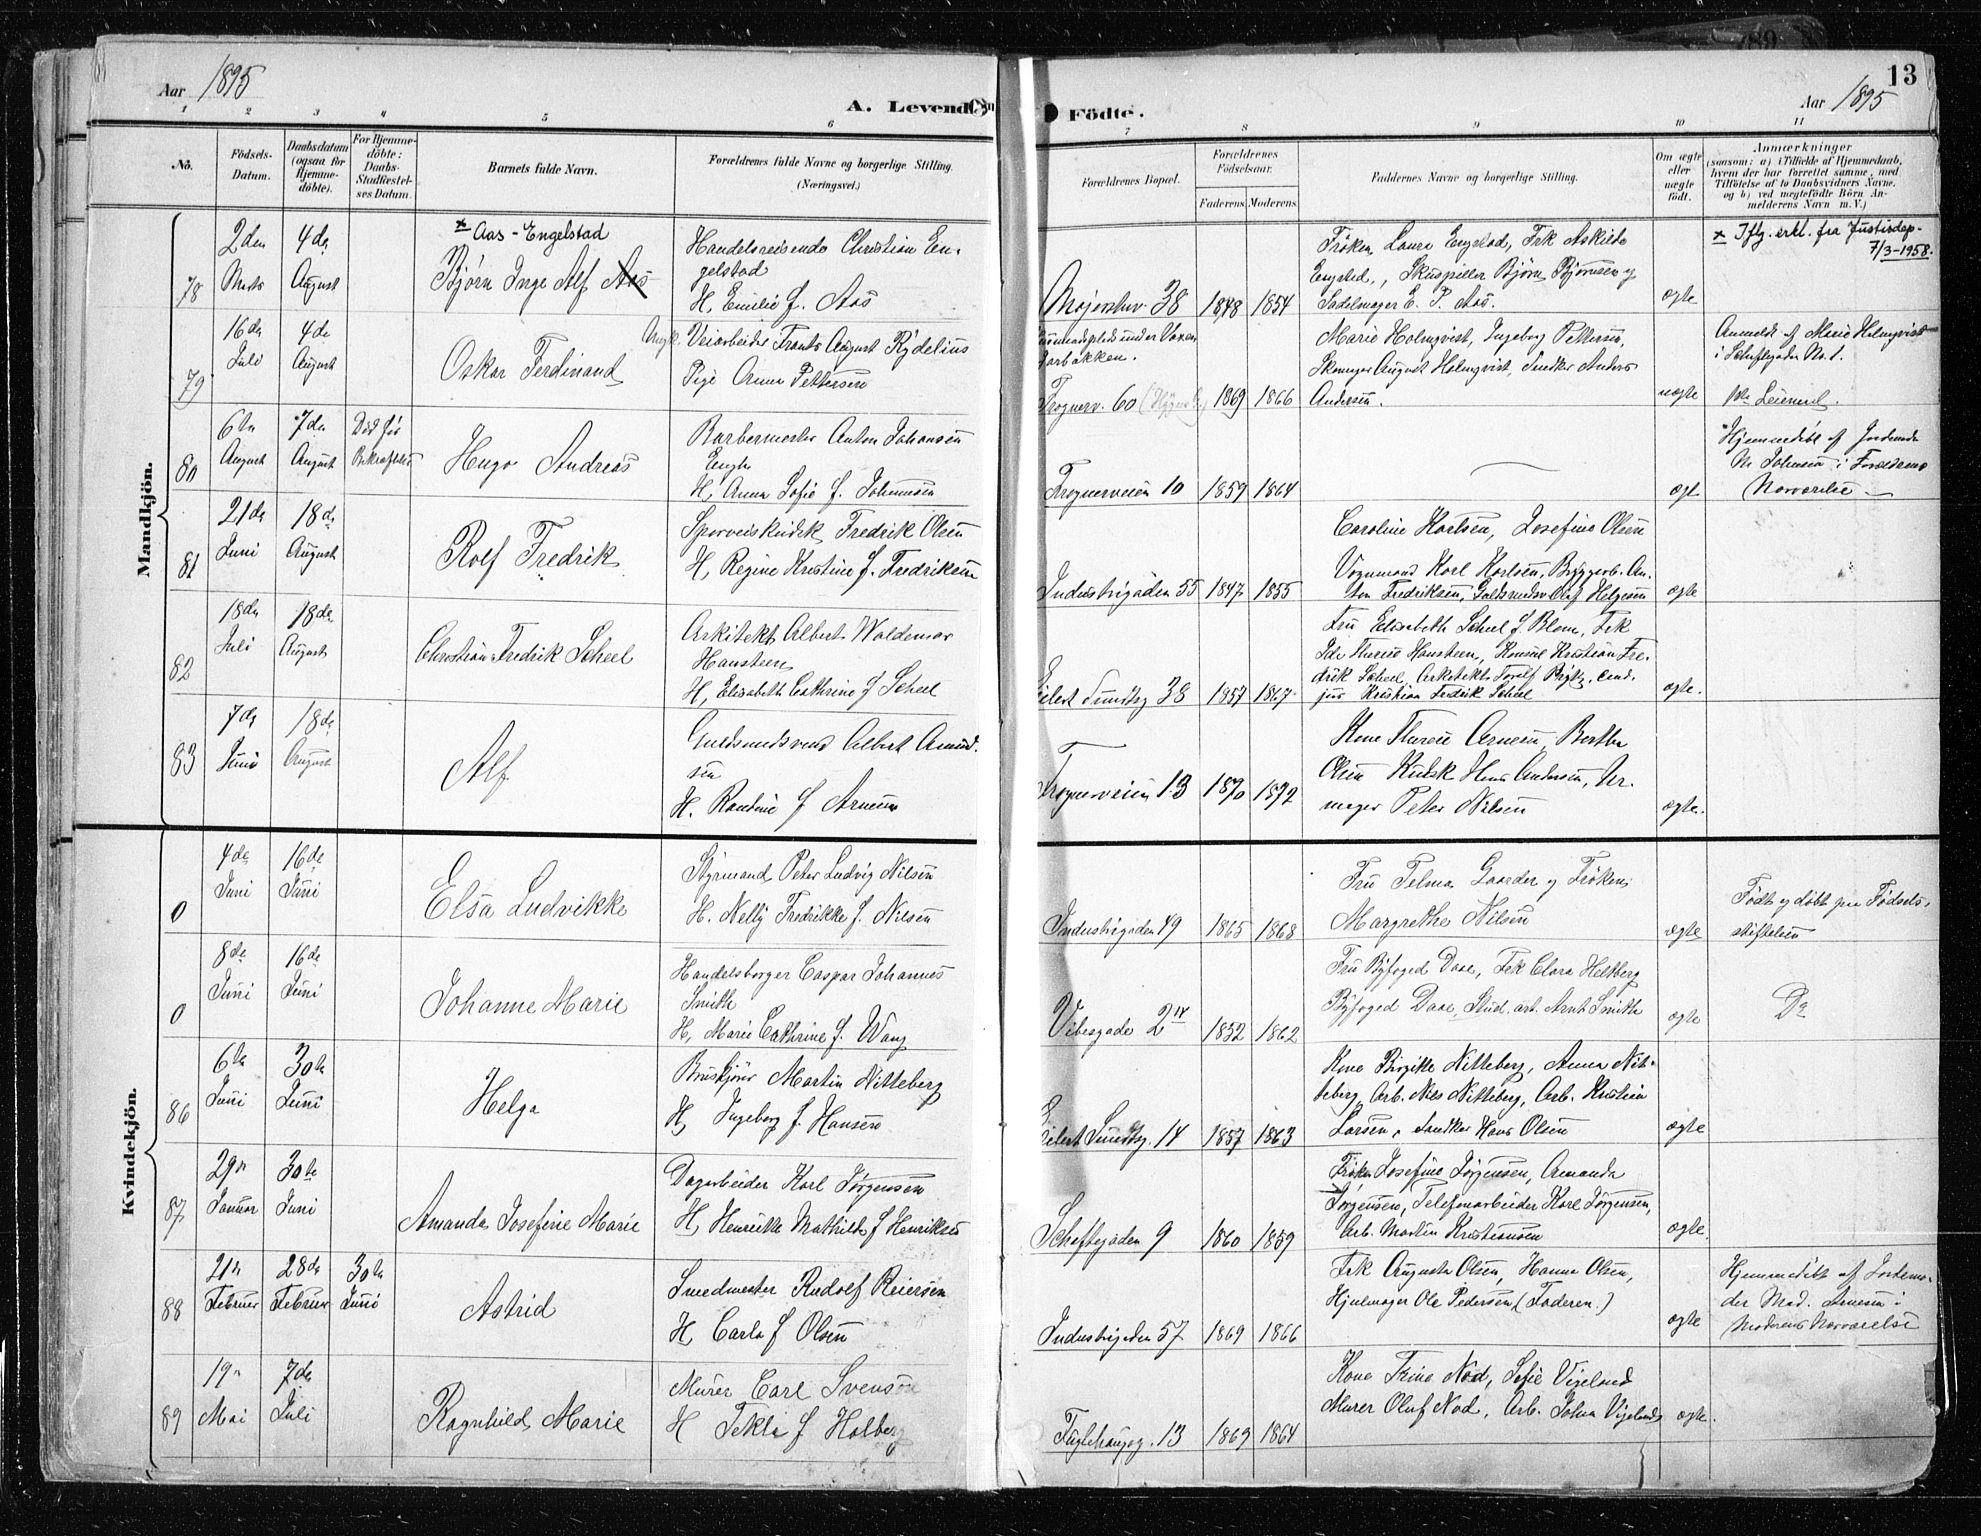 13
Aar 1895
A. Levende
Födte.
Aar 1895
1 2 3 4 5 6 7 8 9 10 11
No.
Födsels-Datum.
Daabsdatum (ogsaa for Hjemme-döbte).
For Hjemme-döbte: Daabs-Stadfæstel-ses Datum.
Barnets fulde Navn.
Forældrenes fulde Navne og borgerlige Stilling.
(Næringsvei.)
Forældrenes Bopæl.
Forældrenes Födselsaar.
Faderens. Moderens.
Faddernes Navne og borgerlige Stilling.
Om ægte eller uægte födt.
Anmærkninger
(saasom: a) i Tilfælde af Hjemmedaab,
hvem der har forrettet samme, med
Tilföielse af to Daabsvidners Navne,
og b) ved uægtefödte Börn An-
melderens Navn m. V.)
Mandkjön.
78
2den Marts
4de August
x Aas - Engelstad
Bjørn Inge Alf Aas
Handelsreisende Christian En-
gelstad
H. Emilie f. Aas
Majorstuv. 38
1848 1854
Frøken Laura Engelstad, Frk
Skuespiller Bjørn Bjørnson og
Sadelmager E. P. Aas.
ægte
x Iflg. erkl. fra Justisdep.
7/3-1958.
79
16de Juli
4de August
Oskar Ferdinand
Veiarbeider Frants August Rydelius
Pige Anna Pettersen
Frognerv. 60
1869 1866
Marie Holmqvist, Ingeborg Pettersen,
August Holmqvist, Snedker Anders
Andersen.
uægte
Anmeldt af Marie Holmqvist
i Schæftegaden No. 1.
80
6te August
7de August
Død før
Hugo Andreas
Barbermester Anton Johansen
Engh
H. Anna Sofie f. Johannesen
Frognerveien 10
1859 1864
ægt
Hjemmedøbt af Jordemoder
M. Johnsen i Forældrenes
Nærværelse
81
21de Juni
18de August
Rolf Fredrik
Sporveiskudsk Fredrik Olsen
H. Regine Kristine f. Fredriksen
Industrigaden 55
1847 1855
Caroline Karlsen, Josefine Olsen
Vognmand Karl Karlsen, Bryggerb. An-
ton Fredriksen, Guldsmedsv. Olaf Helgesen
ægte
82
18de Juli
18de August
Christian Fredrik Scheel
Arkitekt Albert Waldemar
Hansteen
H. Elisabeth Cathrine f. Scheel
Eilert Sundtsg 38
1857 1867
Fru Elisabeth Scheel f. Blom, Frk
Therese Hansteen, Konsul Kristian Fre-
drik Scheel, Arkitekt Torolf Prytz, Cand.
jur Kristian Fredrik Scheel
ægte.
83
7de Juni
18de August
Alf
Guldsmedsvend Albert Amund-
sen
H. Randine f. Arnesen
Frognerveien 13
1870 1872
Kone Therese Arnesen, Berthe
Olsen Kudsk Hans Andersen, Ur-
mager Peter Nilsen
ægte.
Kvindekjön.
0
4de Juni
16de Juni
Elsa Ludvikke
Styrmand Peter Ludvig Nilsen
H. Nelly Fredrikke f. Nilsen
Industrigaden 49
1865 1868
Fru Telma Gaarder og Frøken
Margrethe Nilsen
ægte
Født og døbt paa Fødsels-
stiftelsen
0
8de Juni
16de Juni
Johanne Marie
Handelsborger Caspar Johannes
Smith
H. Marie Cathrine f. Wang
Vibesgade 2
1852 1862
Fru Byfoged Daae, Frk Clara Heltberg
Byfoged Daae, Stud. art. Arnt Smith
ægte
Do
86
6te Juni
30te Juni
Helga
Martin Nitteberg
H. Ingeborg f. Hansen
Eilert Sundtsg. 14
1857 1863
Kone Birgitte Nitteberg, Anna Nit-
teberg, Arb. Nils Nitteberg, Arb. Kristian
Larsen, Snedker Hans Olsen
ægte
87
29de Januar
30te Juni
Amanda Josefine Marie
Dagarbeider Karl Jørgensen
H. Henrikke Mathilde f. Henriksen
Schæftegaden 9
1860 1859
Frøken Josefine Jørgensen, Amanda
Jørgensen, Telefonarbeider Karl Jørgensen,
Arb. Martin Kristiansen
ægte.
88
21de Februar
28de Februar
30te Juni
Astrid
Smedmester Rudolf Reiersen
H. Carla f. Olsen
Industrigaden 57
1869 1866
Frk Augusta Olsen, Hanna Olsen,
Hjulmager Ole Pedersen (Faderen.)
ægte
Hjemmedøbt af Jordemo-
der Mad. Arnesen i
Moderens Nærværelse
89
19de Mai
7de Juli
Ragnhild Marie
Murer Carl Svenson
H. Tekla f. Halberg
Fuglehaugg. 13
1869 1864
Kone Trine Nod, Sofie Vigeland
Murer Oluf Nod, Arb. Johan Vigeland
ægte.